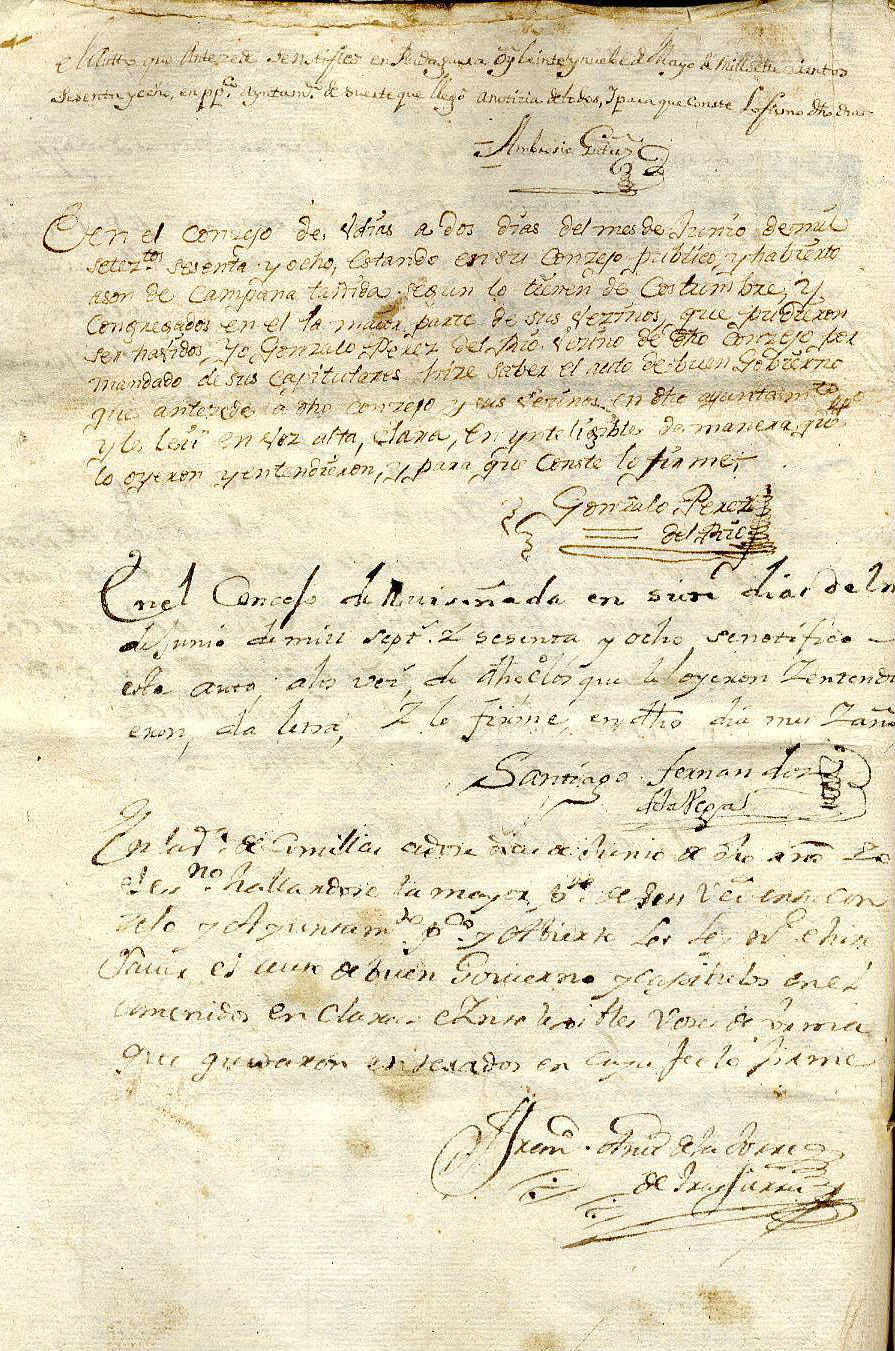 el Auto que Antezede se notifico en Rudaguera oy beinte y nuebe de Mayo de mill sete zientos
sesenta y ocho, en pp.co Ayuntam.to de suerte que llegó a notizia de todos, Y para que Conste lo firmo dho dia
Ambrosio Gutrrz
En el Conzejo de Udias a dos dias del mes de Junio de mil
setez.tos sesenta y ocho, Estando en su Conzejo publico, y habierto
ason de Campana tañida segun lo tienen de Costumbre, y
Congregados en el la maior parte de sus Vezinos, que pudieron
ser havidos, Yo Gonzalo Perez del Rio Vezino de dho Conzejo por
mandado de sus Capitulares hize saber el auto de buen Gobierno
que antezede a dho Conzejo y sus Vezinos, en dho ayuntamto
y lo leii en Voz alta, Clara, En ynteligible, de manera que
lo oyeron y entendieron, y para que Conste lo firme,
Gonzalo Perez
del Rio
En el Concejo de Ruiseñada en dias de
de Junio de mill sept.s Z sesenta y ocho, se notifico
este auto, a los vez.s de dho los que le oyeron Z entendi
eron, a la letra, Z lo firme, en dho dia mes Z año
Santiago Fernandez
de la Vega
En la de Comillas a doze dias de Junio de dho año Yo
el ess.no hallandose la mayor p.te de sus Vez en su Con
zejo y Ayuntam.to p.co y Abierto les ley e hize
Saver el auto de buen Govierno y Capitulos en el
Contenidos en Claras e Yntelejibles Vozes de forma
que quedaron enterados en cuya fee lo firme
de la Torre
de Tras